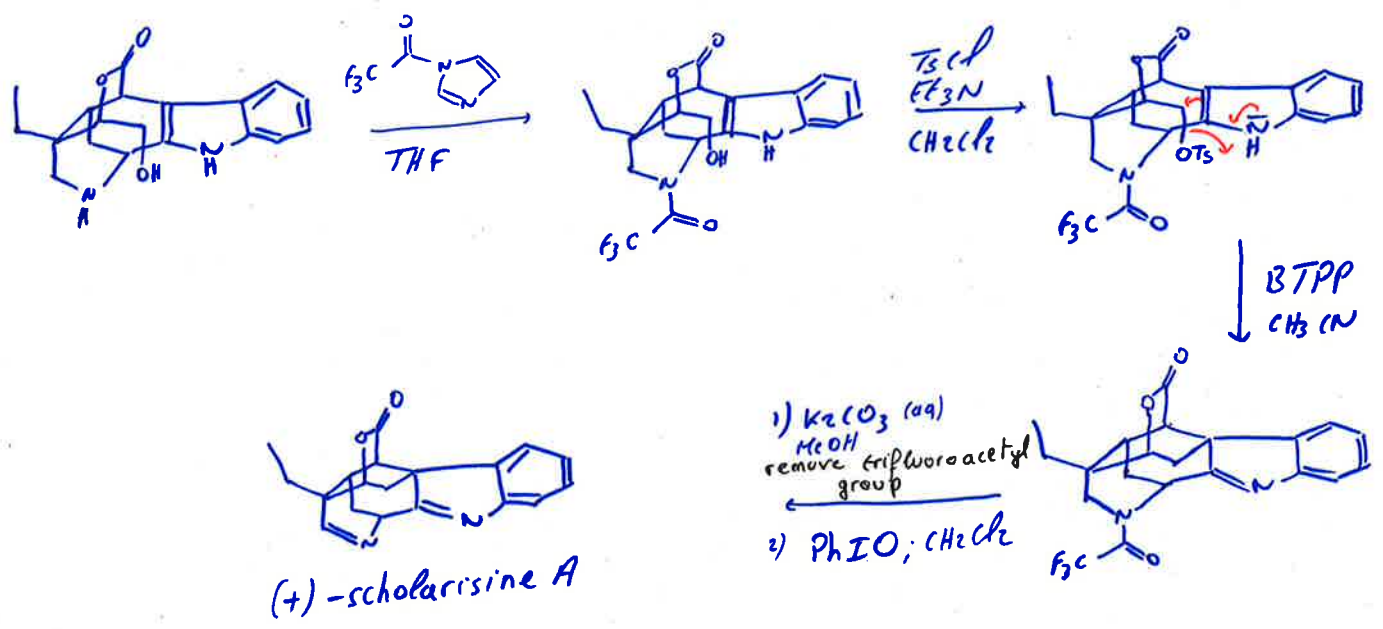 O
O
F3C
N
N
THF
O
O
N
H
OH
N
H
O
O
N
H
OH
N
F3C
O
TsCl
Et3N
CH2Cl2
O
O
N
H
OTs
N
F3C
O
BTPP
CH3CN
O
O
N
N
F3C
O
1) K2CO3 (aq)
MeOH
remove trifluoroacetyl
group
2) PhIO; CH2Cl2
O
O
N
N
(+)-scholarisine A